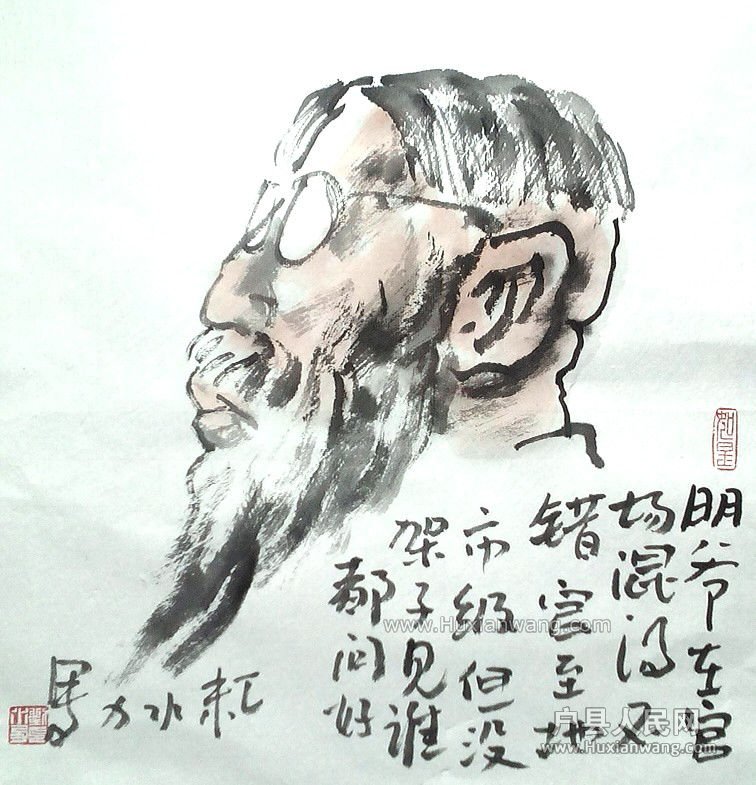 明爷在官
场混得不
错官至地
市级但没
架子见谁
都问好
如是
www.Huxianwang.com
www.Huxianwang.com
户县人民网
www.Huxianwang.com